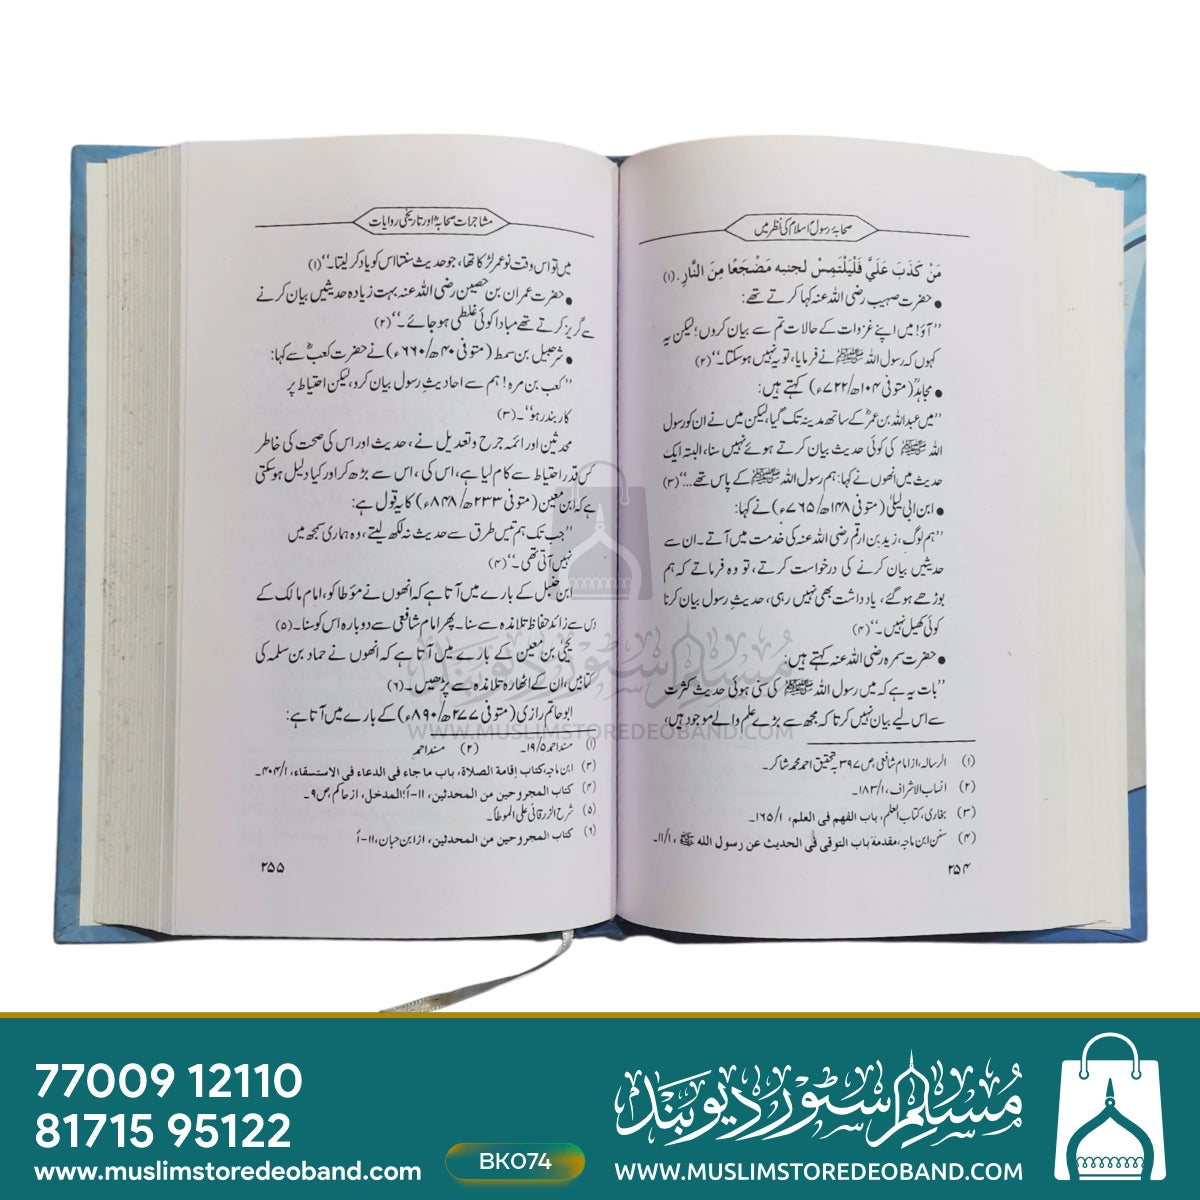 صحابۂ رسولؐ اسلام کی نظر میں
مَنْ كَذَبَ عَلَيَّ فَلْيَلْتَمِسْ لجنبه مَضْجَعًا مِنَ النَّارِ. (۱)
● حضرت صہیب رضی اللہ عنہ کہا کرتے تھے:
’’آؤ! میں اپنے غزوات کے حالات تم سے بیان کروں؛ لیکن یہ
کہوں کہ رسول اللہ ﷺ نے فرمایا، تو یہ نہیں ہوسکتا۔‘‘(۲)
● مجاہدؒ (متوفی ۱۰۴ھ/۷۲۲ء) کہتے ہیں:
’’میں عبداللہ بن عمرؓ کے ساتھ مدینہ تک گیا، لیکن میں نے ان کو رسول
اللہ ﷺ کی کوئی حدیث بیان کرتے ہوئے نہیں سنا، البتہ ایک
حدیث میں انھوں نے کہا: ہم رسول اللہ ﷺ کے پاس تھے...‘‘(۳)
● ابن ابی لیلیٰ (متوفی ۱۴۸ھ/۷۶۵ء) نے کہا:
’’ہم لوگ، زید بن ارقم رضی اللہ عنہ کی خدمت میں آتے۔ ان سے
حدیثیں بیان کرنے کی درخواست کرتے، تو وہ فرماتے کہ ہم
بوڑھے ہوگئے، یادداشت بھی نہیں رہی، حدیثِ رسول بیان کرنا
کوئی کھیل نہیں۔‘‘(۴)
● حضرت سمرہ رضی اللہ عنہ کہتے ہیں:
’’بات یہ ہے کہ میں رسول اللہ ﷺ کی سنی ہوئی حدیث کثرت
سے اس لیے بیان نہیں کرتا کہ مجھ سے بڑے علم والے موجود ہیں،
(۱) الرسالہ، از امام شافعی، ص۳۹۷ بہ تحقیق احمد محمد شاکر۔
(۲) انساب الاشراف، ۱/۱۸۳۔
(۳) بخاری، کتاب العلم، باب الفهم في العلم، ۱/۱۶۵۔
(۴) سنن ابن ماجہ، مقدمة باب التوقي في الحديث عن رسول الله ﷺ، ۱/۱۱۔
۲۵۴
مشاجرات صحابہؓ اور تاریخی روایات
میں تو اس وقت نو عمر لڑکا تھا، جو حدیث سنتا اس کو یاد کرلیتا۔‘‘(۱)
● حضرت عمران بن حصین رضی اللہ عنہ بہت زیادہ حدیثیں بیان کرنے
سے گریز کرتے تھے مبادا کوئی غلطی ہوجائے۔‘‘(۲)
● شرحبیل بن سمط (متوفی ۴۰ھ/۶۶۰ء) نے حضرت کعبؓ سے کہا:
’’کعب بن مرہ! ہم سے احادیثِ رسول بیان کرو، لیکن احتیاط پر
کاربند رہو‘‘۔(۳)
محدثین اور ائمہ جرح و تعدیل نے، حدیث اور اس کی صحت کی خاطر
کس قدر احتیاط سے کام لیا ہے، اس کی، اس سے بڑھ کر اور کیا دلیل ہوسکتی
ہے کہ ابن معین (متوفی ۲۳۳ھ/۸۴۸ء) کا یہ قول ہے:
’’جب تک ہم تیس طرق سے حدیث نہ لکھ لیتے، وہ ہماری سمجھ میں
نہیں آتی تھی۔‘‘(۴)
ابن حنبل کے بارے میں آتا ہے کہ انھوں نے مؤطا کو، امام مالک کے
دس سے زائد حفاظ تلامذہ سے سنا۔ پھر امام شافعی سے دوبارہ اس کو سنا۔(۵)
یحییٰ بن معین کے بارے میں آتا ہے کہ انھوں نے حماد بن سلمہ کی
کتابیں، ان کے اٹھارہ تلامذہ سے پڑھیں۔(۶)
ابوحاتم رازی (متوفی ۲۷۷ھ/۸۹۰ء) کے بارے میں آتا ہے:
(۱) مسند احمد ۵/۱۹۔ (۲) مسند احمد
(۳) ابن ماجہ، کتاب إقامة الصلاة، باب ما جاء في الدعاء في الاستسقاء، ۱/۴۰۴۔
(۴) كتاب المجروحين من المحدثين، ۱۱-أ؛ المدخل، از حاکم، ص۹۔
(۵) شرح الزرقانی علی الموطأ۔
(۶) كتاب المجروحين من المحدثين، از ابن حبان، ۱۱-أ
۲۵۵
مسلم سٹور دیوبند
WWW.MUSLIMSTOREDEOBAND.COM
77009 12110
81715 95122
www.muslimstoredeoband.com
BK074
مسلم سٹور دیوبند
WWW.MUSLIMSTOREDEOBAND.COM